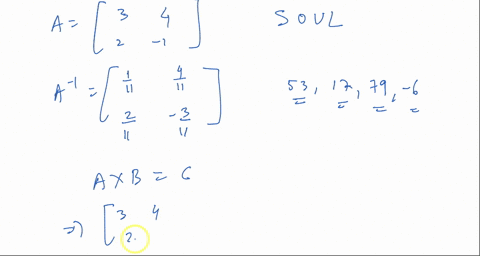 A = [ 3 4
2 -1 ]
SOUL
A⁻¹ = [ 1/11 4/11
2/11 -3/11 ]
53, 17, 79, -6
A X B = C
⇒ [ 3 4
2